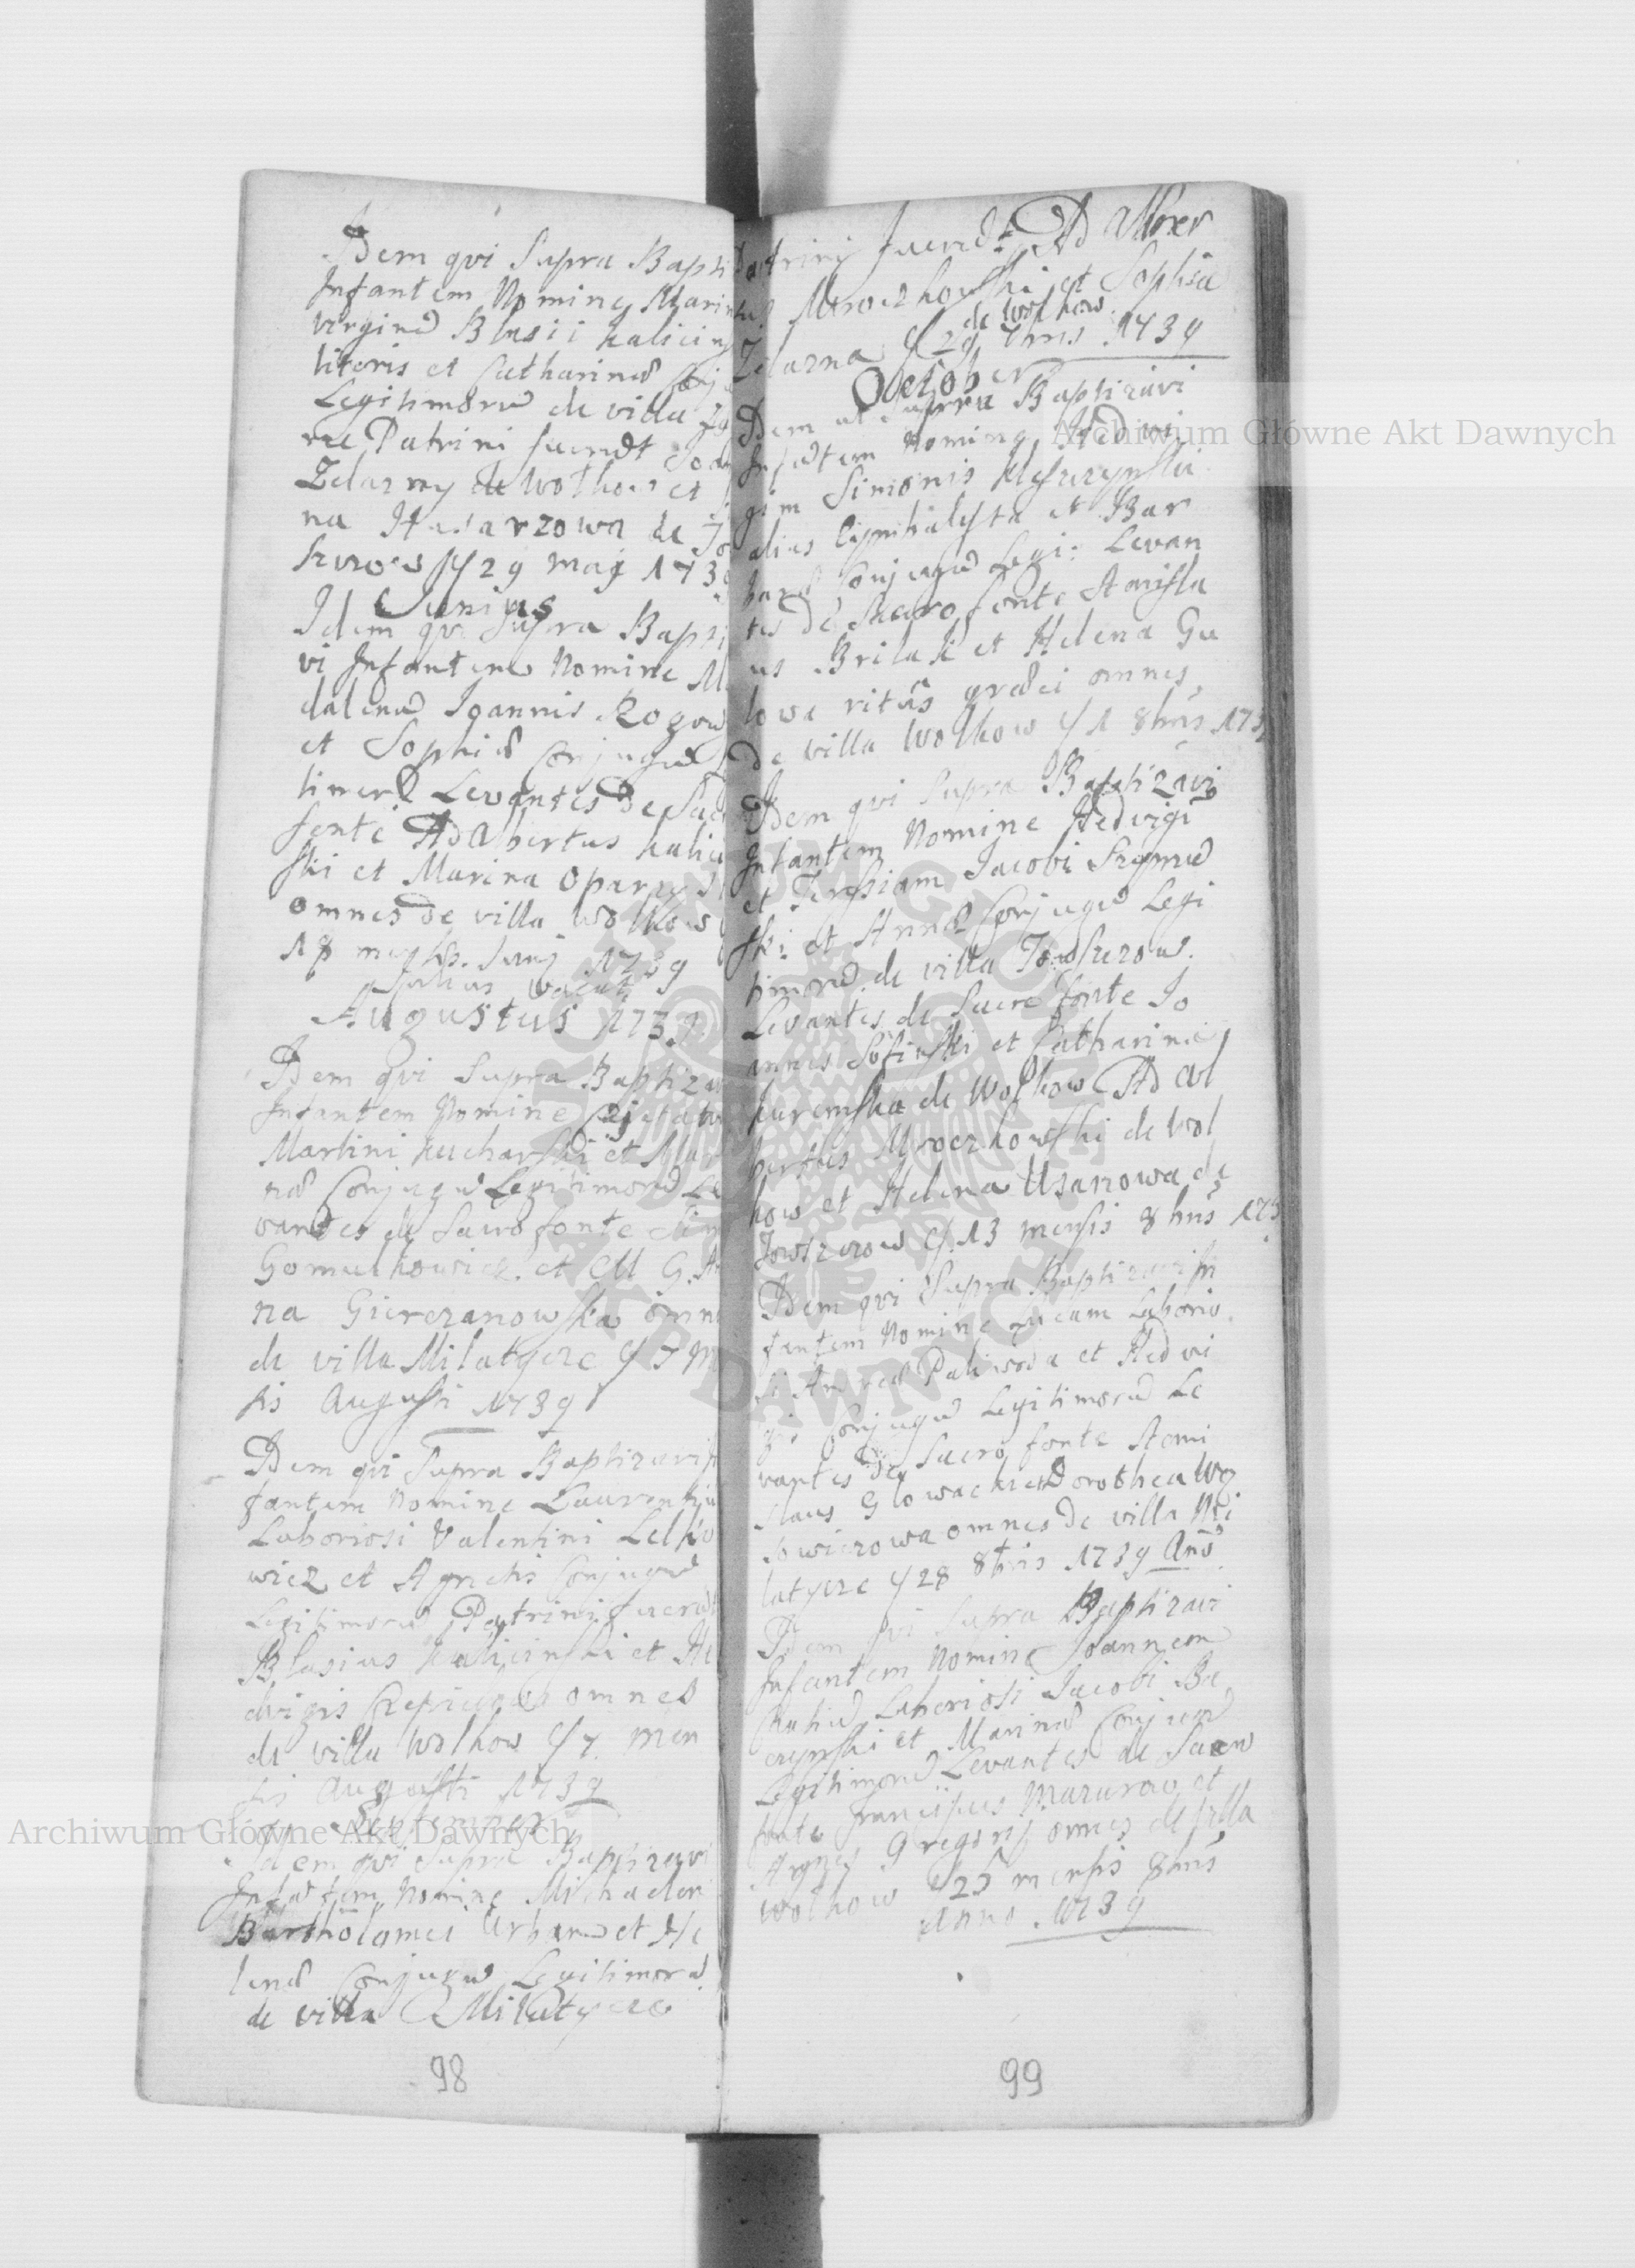 Idem qvi Supra Bapti
Infantem Nomine Marin
virginē Blasii kalicin
literis et Catharinæ Conj
Legitimorū de villa
ræ Patrini fuerūt Joa
Zelazny de Wolkow et
na Husarzowa de Jo
sczrow 29 maij 173
Junius
Idem qvi Supra Bapti
vi Infantem Nomine M
dalenā Joannis Rogow
et Sophiæ Conjugū
timorū Levantes de Sac
fonte Adalbertus kalici
ski et Marina
omnes de villa Wolkow
18 Junij 1739
Julius vacat
Augustus 1739
Idem qvi Supra Baptiza
Infantem Nomine Cajetan
Martini kucharski et Mar
næ Conjugū Legitimorū Le
vantes de Sacro fonte Sim
Gomułkowicz et M G. An
na Gierczanowska omn
de villa Milatycze 7 M
sis Augusti 1739
Idem qvi Supra Baptizavi In
fantem Nomine Laurentiu
Laboriosi Valentini Lelko
wicz et Agnetis Conjugū
Legitimorū Patrini fuerūt
Blasius kalicinski et He
dvigis omnes
de villa Wolkow 7 men
sis Augusti 1739
September
Idem qvi Supra Baptizavi
Infantem Nomine Michaelem
Bartholomei Urban et He
lenæ Conjugū Legitimorū
de villa Milatycze
98
Patrini fuerūt Adalber
tus Mroczkowski et Sophia
de Wolkow
Zelazna 29 7bris 1739
October
Idem ut supra Baptizavi
Infātem Nomine Hedvi
gim Simonis
alias Cymbalysta et Bar
baræ Conjugū Legi: Levan
tes de Sacro fonte Stanisla
us Brilak et Helena Gu
lowa ritûs græci omnes
de villa Wolkow 1 8bris 173
Idem qvi Supra Baptizavi
Infantem Nomine Hedvigī
et Teresiam Jacobi Szyma
ski et Annæ Conjugū Legi
timorū de villa Towsczow.
Levantes de Sacro fonte Jo
annes et Catharina
de Wolkow Adal
bertus Mroczkowski de Wol
kow et Helena Usarzowa de
Towsczow 13 mensis 8bris 173
Idem qvi Supra Baptizavi In
fantem Nomine Lucam Laborio
si Andreæ Paliwoda et Hedvi
gis Conjugū Legitimorū Le
vantes de Sacro fonte Stani
slaus Glowacki et Dorothea
omnes de villa Mi
latycze 28 8bris 1739 Anō
Idem qvi Supra Baptizavi
Infantem Nomine Joannem
Laboriosi Jacobi Ba
czynski et Marinæ Conjugū
Legitimorū Levantes de Sacro
fonte Franciscus Mazurow et
Gregorij omnes de villa
Wolkow 25 mensis 8bris
Anno 1739
99
Archiwum Główne Akt Dawnych
Archiwum Główne Akt Dawnych
ARCHIWUM GŁÓWNE AKT DAWNYCH